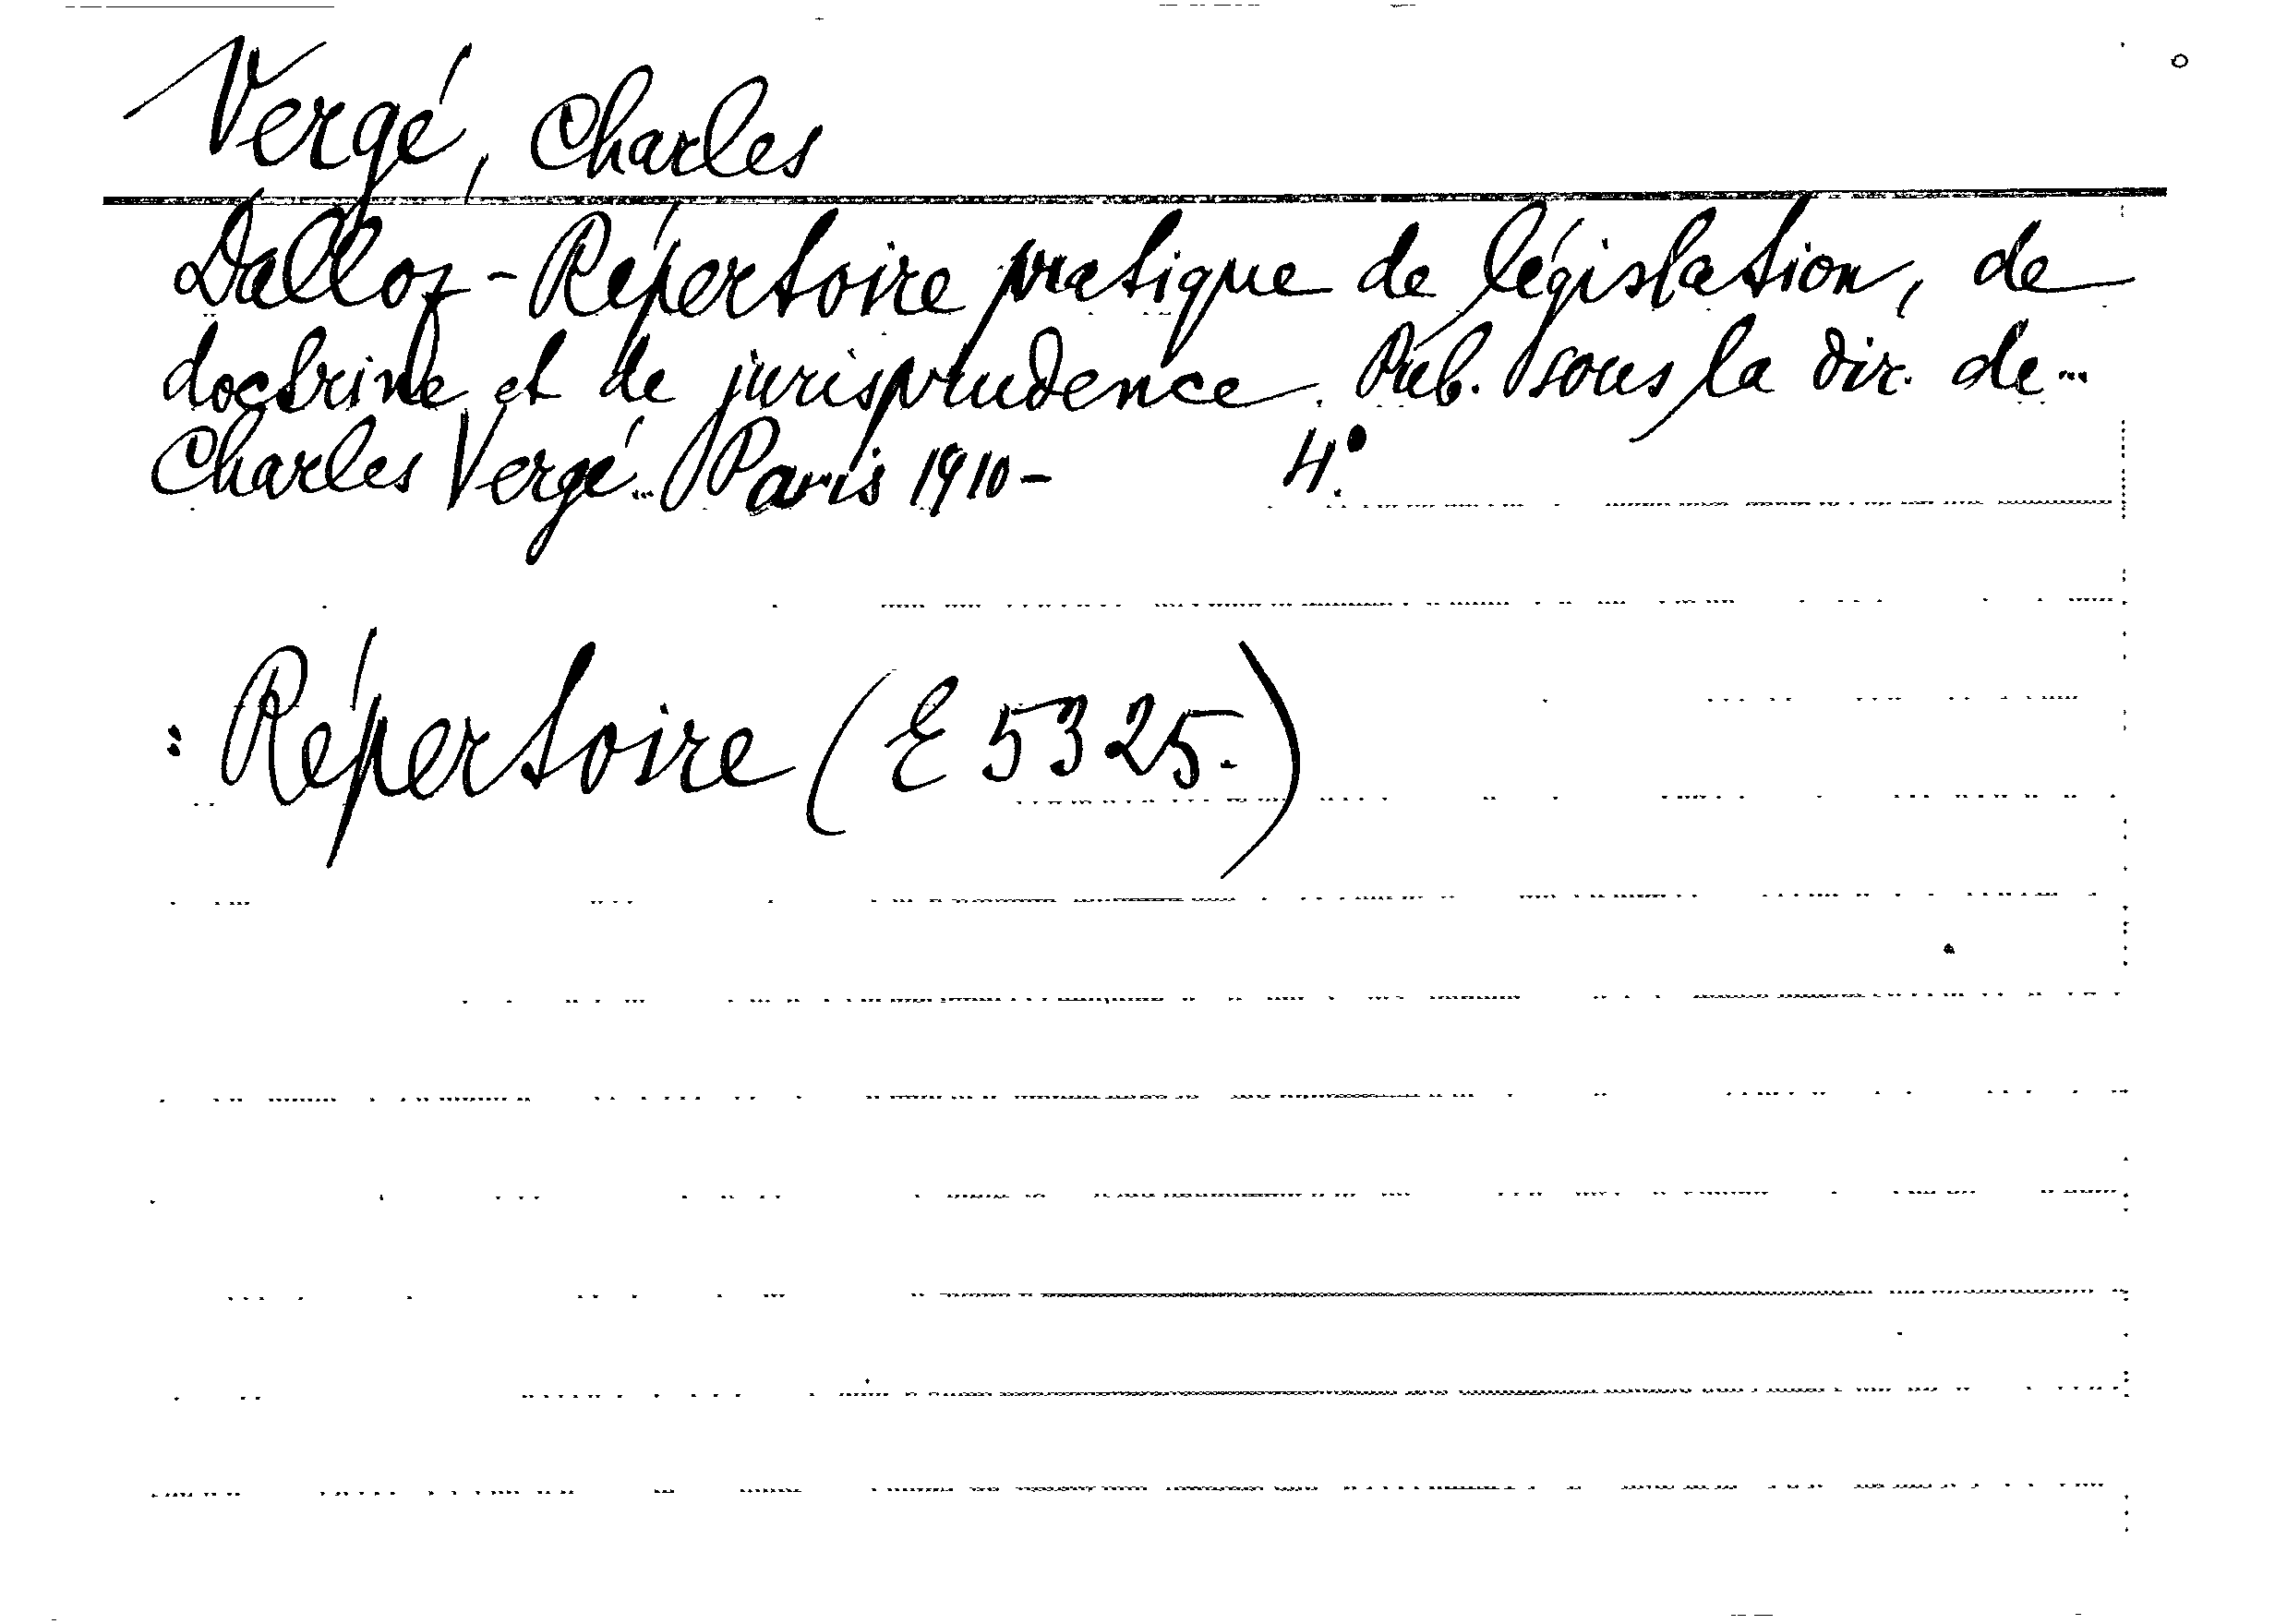 Vergé, Charles
Dalloz - Répertoire pratique de législation, de
doctrine et de jurisprudence. Pub. sous la dir. de...
Charles Vergé... Paris 1910- 4°.
: Répertoire (E 5325.)